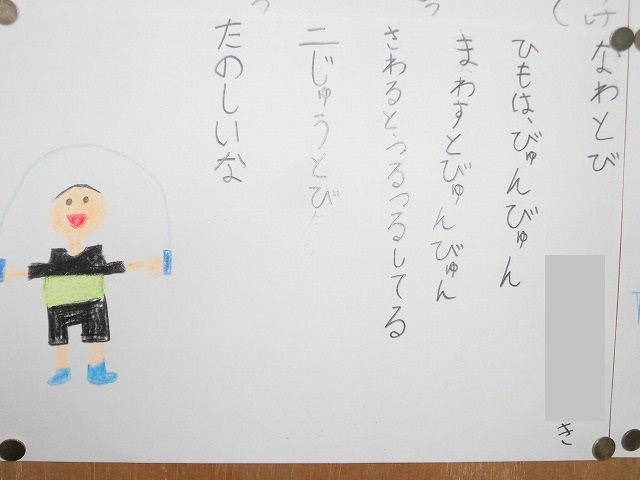 なわとび
き
ひもは、びゅんびゅん
まわすとびゅんびゅん
さわると、つるつるしてる
二じゅうとび
たのしいな